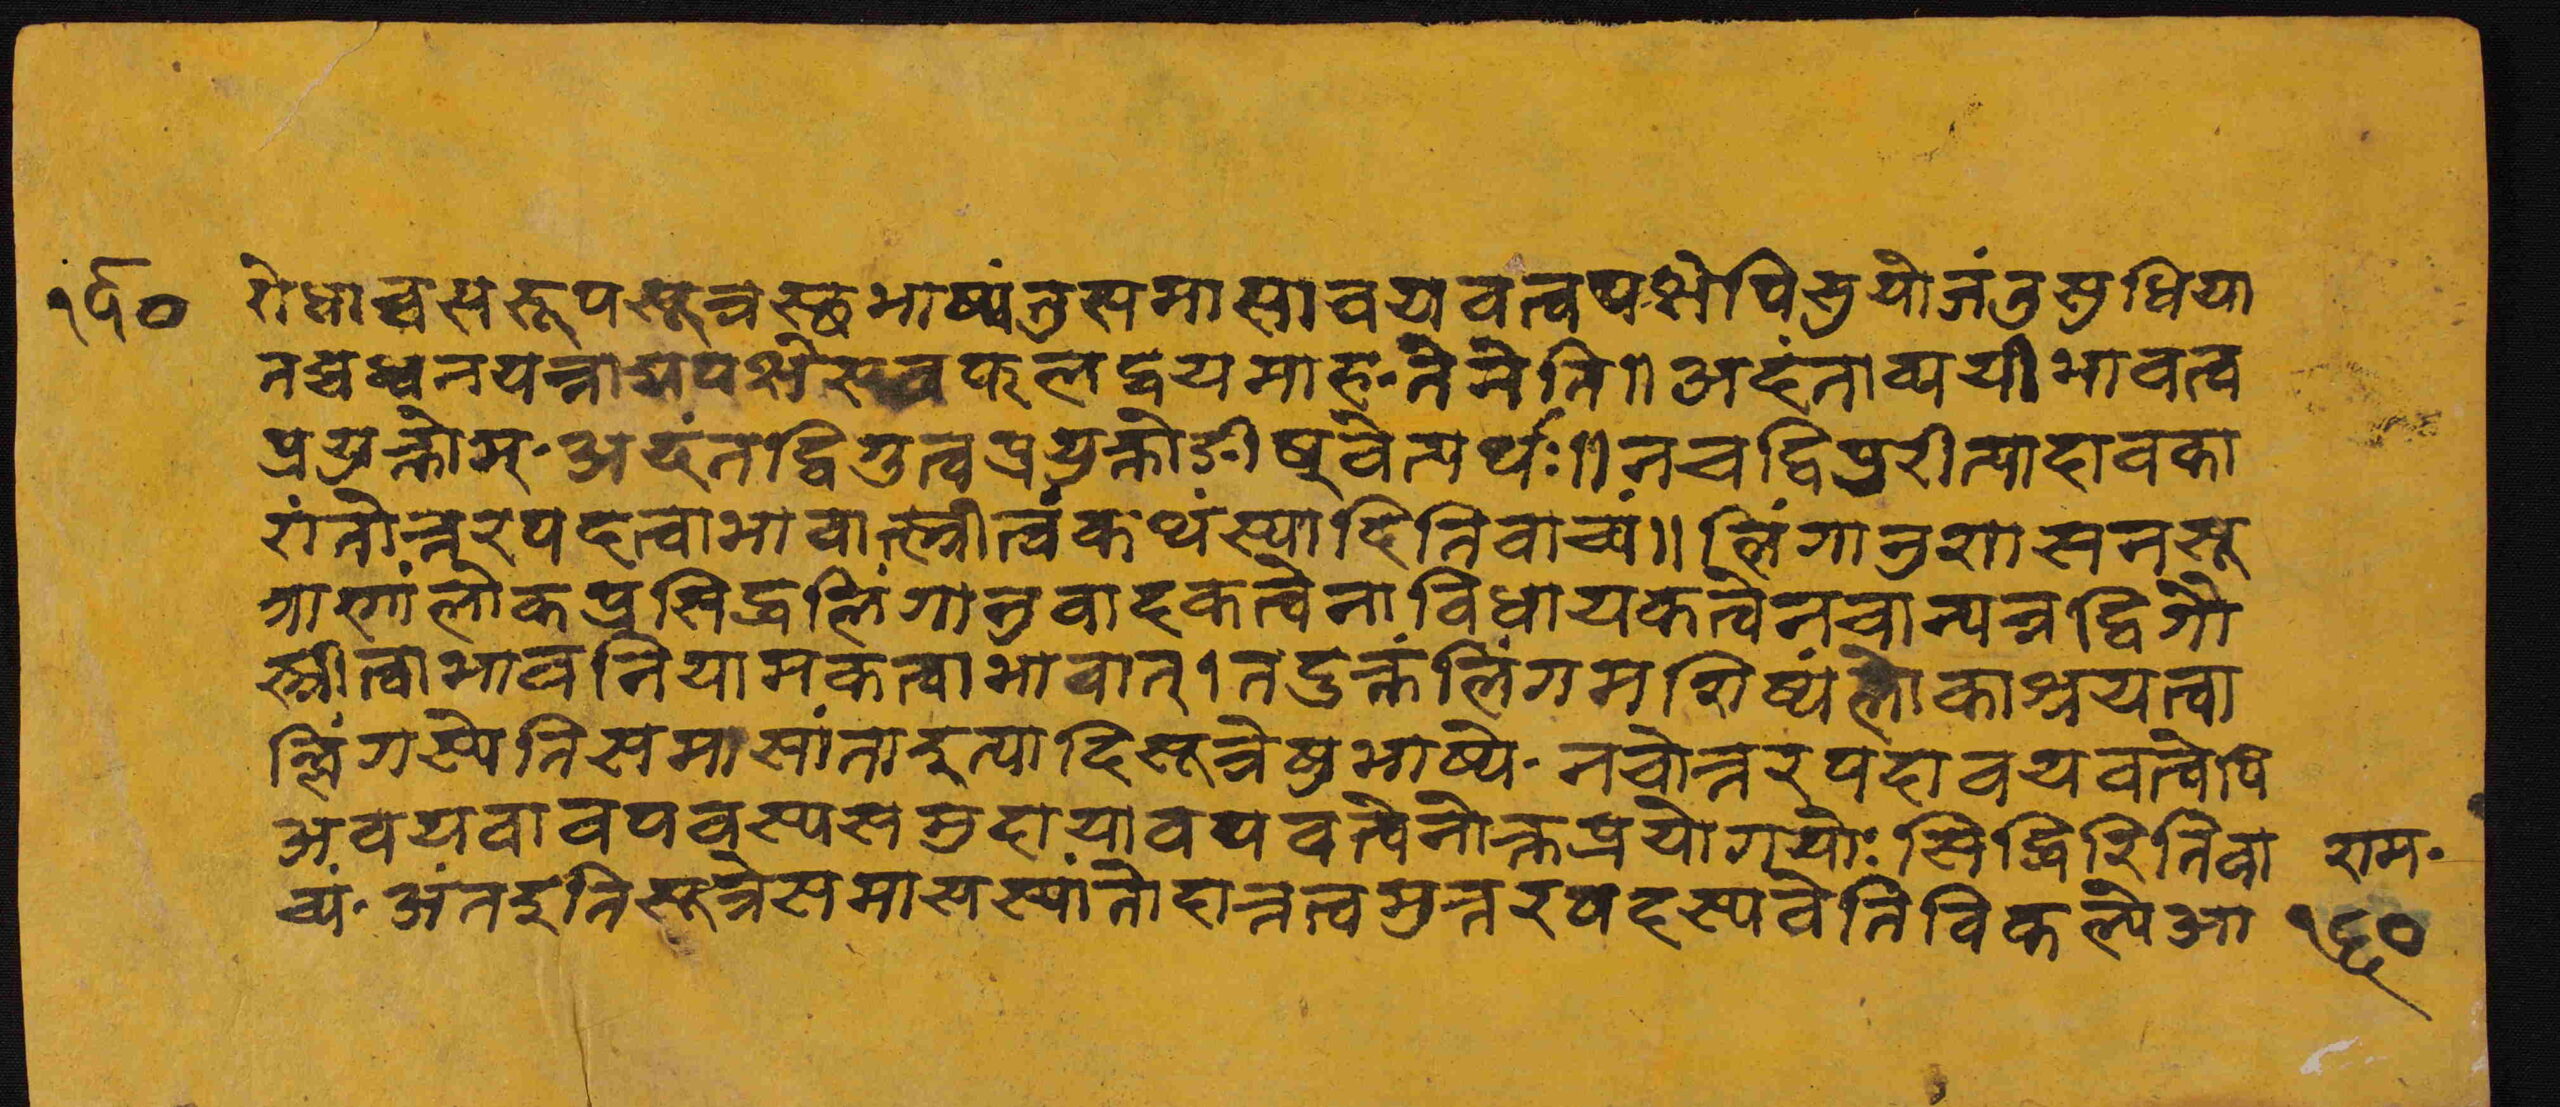 १६० रोधाच्चसरूपसूत्रस्थभाष्यंतुसमासावयवत्वपक्षेपिसुयोजंतुसुधिया
नच्चध्वनयन्नाद्यपक्षेसवफलद्वयमाह-तेनेति॥अदंताव्ययीभावत्व
प्रयुक्तोम्-अदंतद्विगुत्वप्रयुक्तोङीष्वेत्यर्थः॥नचद्विपुरीत्यादावका
रांतोत्तरपदत्वाभावात्स्त्रीत्वंकथंस्यादितिवाच्यं॥लिंगानुशासनसू
त्राणांलोकप्रसिद्धलिंगानुवादकत्वेनाविधायकत्वेनचान्यत्रद्विगौ
स्त्रीत्वाभावनियामकत्वाभावात्।तदुक्तंलिंगमशिष्यंलोकाश्रयत्वा
ल्लिंगस्येतिसमासांताइत्यादिसूत्रेषुभाष्ये-नचोत्तरपदावयवत्वेपि
अवयवावयवस्यसमुदायावयवत्वेनोक्तप्रयोगयोःसिद्धिरितिवा राम-
च्यं-अंतइतिसूत्रेसमासस्यांतोदात्तत्वमुत्तरपदस्यवेतिविकल्पेआ १६०